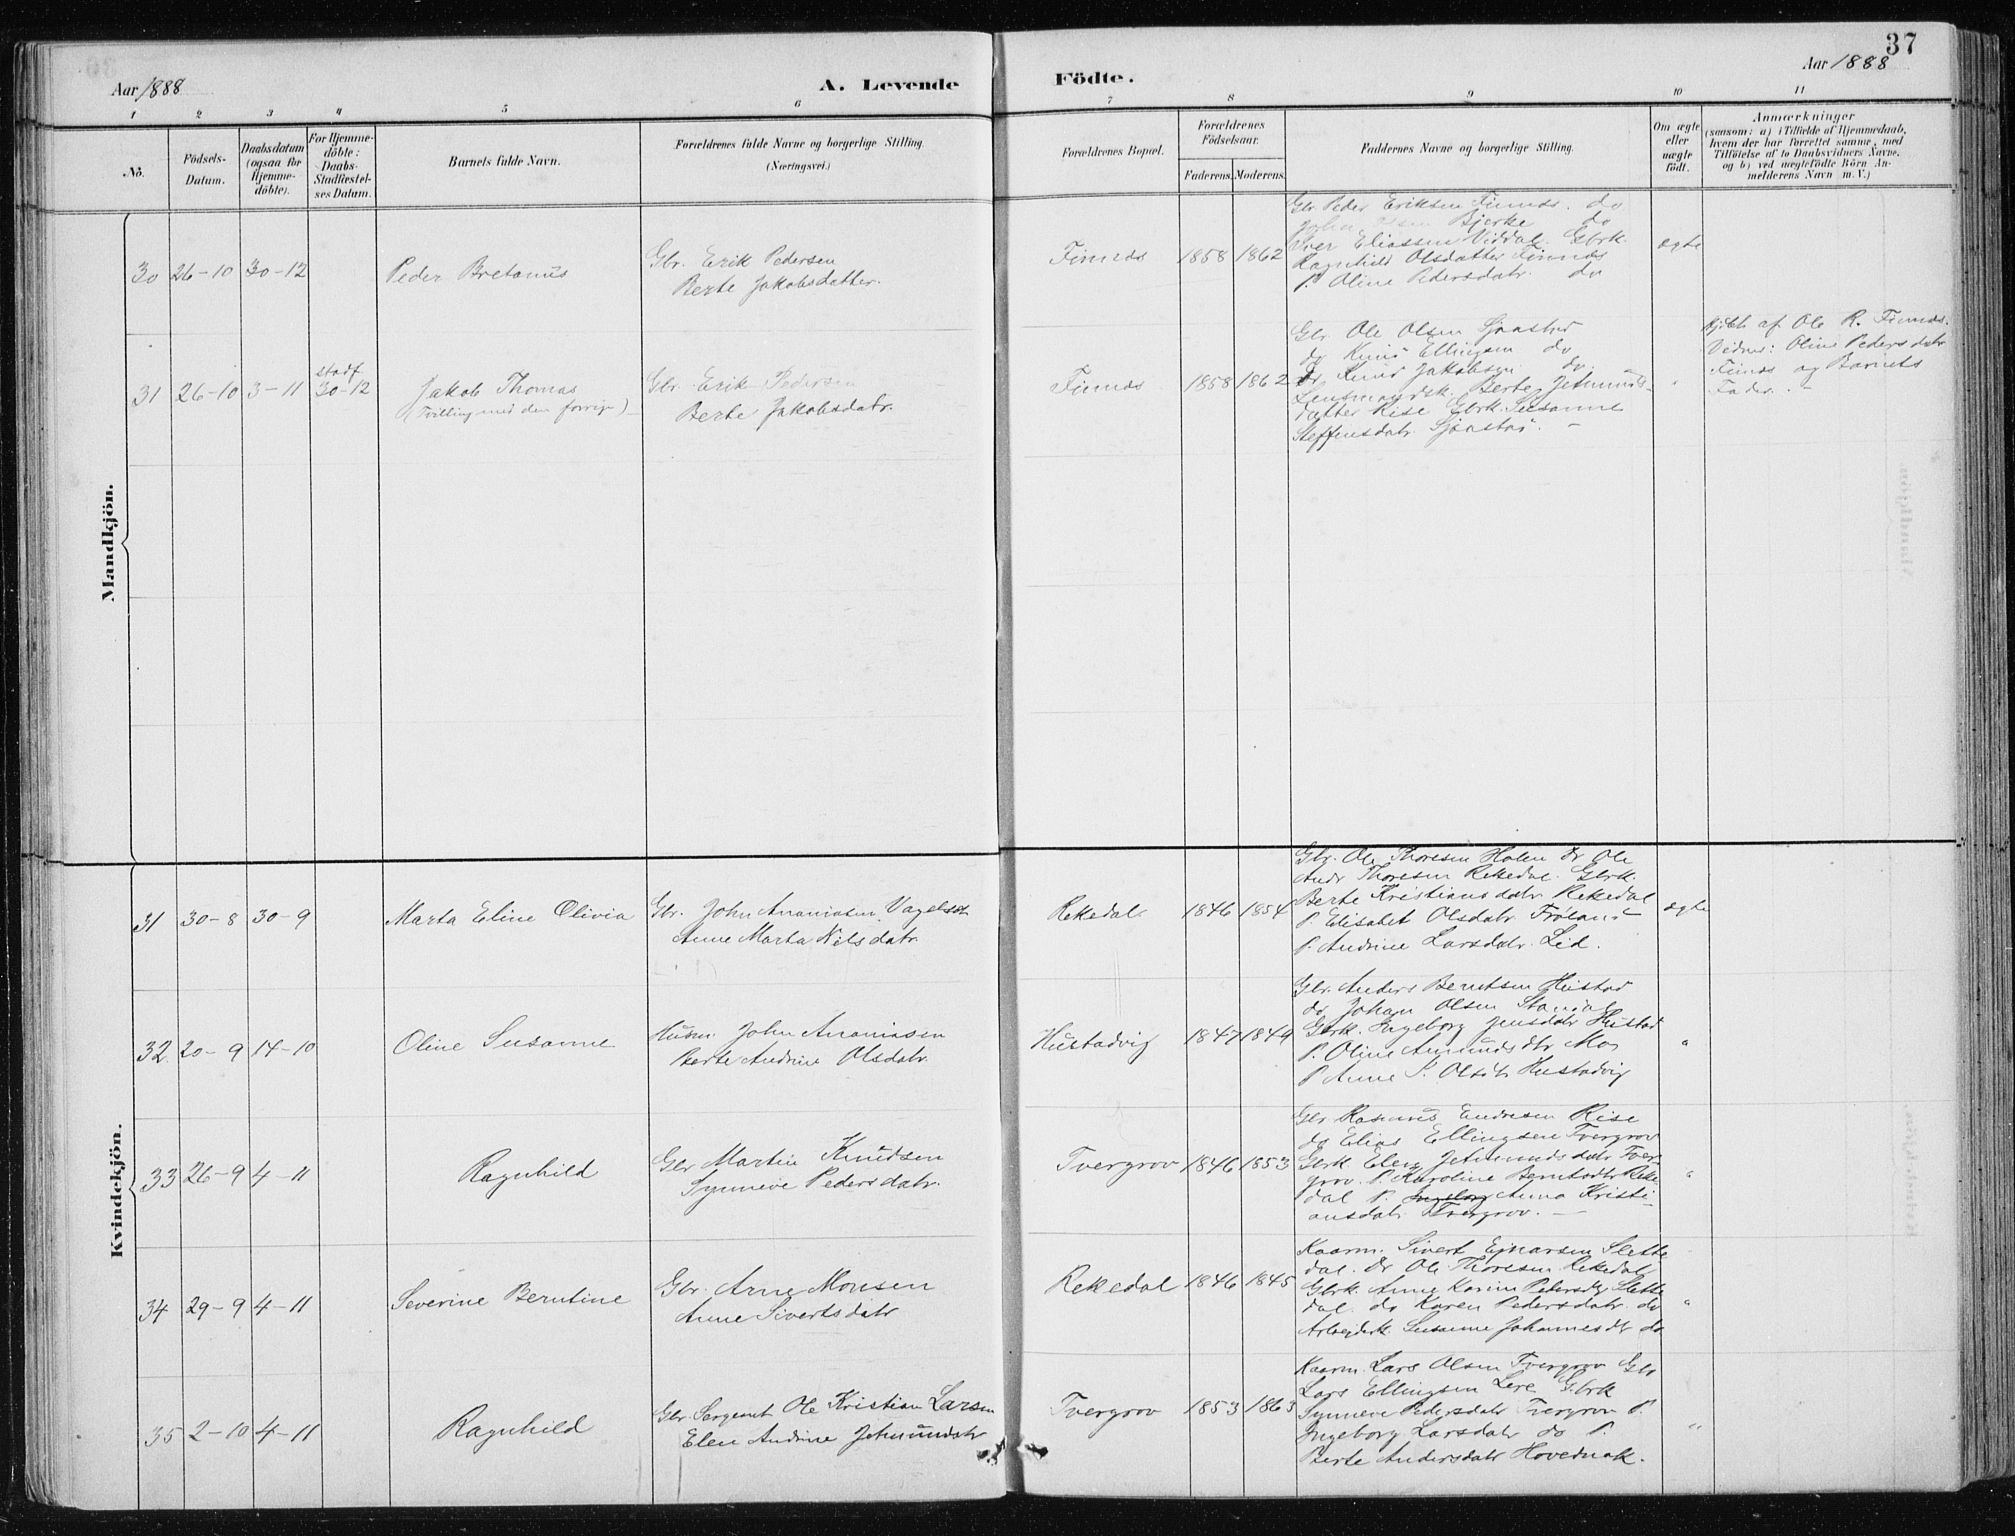 37
Aar 1888
A. Levende
Födte.
Aar 1888
1 2 3 4 5 6 7 8 9 10 11
No.
Födsels-Datum.
Daabsdatum (ogsaa for Hjemme-döbte).
For Hjemme-döbte: Daabs-Stadfæstel-ses Datum.
Barnets fulde Navn.
Forældrenes fulde Navne og borgerlige Stilling.
(Næringsvei.)
Forældrenes Bopæl.
Forældrenes Födselsaar.
Faderens. Moderens.
Faddernes Navne og borgerlige Stilling.
Om ægte eller uægte födt.
Anmærkninger
(saasom: a) i Tilfælde af Hjemmedaab,
hvem der har forrettet samme, med
Tilföielse af to Daabsvidners Navne,
og b) ved uægtefödte Börn An-
melderens Navn m. V.)
Mandkjön.
30 26-10 30-12
Peder Bretanus
Gbr. Erik Pedersen
Berte Jakobsdatter.
Finnes 1858 1862
Gbr Peder Eriksen Finnes. do
Olsen Bjerke do
Iver Eliassen Viddal. Gbrk.
Ragnhild Olsdatter Finnes
P. Oline Pedersdatr. do
ægte
31 26-10 3-11
stadf
30-12
Jakob Thomas
(Tvilling med den forrige)
Gbr. Erik Pedersen
Berte Jakobsdatr.
Finnes 1858 1862
Gbr. Ole Olsen Sjaastad
do Knud Ellingsen do
Dr Knud Jakobsen do.
Lensmandsk. Berte Jetmunds-
datter Rise Gbrk. Susanne
Steffensdatr. Sjaastad. -
"
Hjdbt af Ole R. Finnes.
Vidner: Oline Pedersdatr
Finnes og Barnets
Fader. -
Kvindekjön.
31 30-8 30-9
Marta Eline Olivia
Gbr. John Ananiasen
Anne Marta Nilsdatr.
Rekedal 1846 1854
Gbr. Ole Thoresen Holen Dr Ole
Andr Thoresen Rekedal. Gbrk.
Berte Kristiansdatr Rekedal
P. Elisabet Olsdatr. Fröland
P. Andrine Larsdatr. Lid.
ægte
32 20-9 14-10
Oline Susanne
Husm. John Ananiasen
Berte Andrine Olsdatr.
Hustadvig 1847 1849
Gbr. Anders Berntsen Hustad
do Johan Olsen Standal
Gbrk. Ingeborg Jensdatr Hustad
P. Oline Amundsdtr Mo
P Anne S. Olsdtr Hustadvig
"
33 26-9 4-11
Ragnhild
Gbr Martin Knudsen
Synneve Pedersdatr.
Tvergrov 1846 1853
Gbr Rasmus Endresen Rise
do Elias Ellingsen Tvergrov
Gbrk Elen Jetmundsdatr Tver-
grov. P. Karoline Berntsdtr Reke-
dal P. Ingeborg Anna Kristi-
ansdatr. Tvergrov. -
"
34 29-9 4-11
Severine Berntine
Gbr. Arne Monsen
Anne Sivertsdatr
Rekedal 1846 1845
Kaarm. Sivert Ejnarsen Slette
dal. Dr Ole Thoresen Rekedal
Gbrk. Anne Karine Petersdtr Slette
dal. do Karen Pedersdatr. do
Arbejderk. Susanne Johannesdt do
"
35 2-10 4-11
Ragnhild
Gbr. Sergeant Ole Kristian Larsen
Elen Andrine Jetmundsdtr
Tvergrov 1853 1863
Kaarm. Lars Olsen Tvergrov Gbr
Lars Ellingsen Lere Gbrk
Synneve Pedersdatr Tvergrov P.
Ingeborg Larsdatr do P.
Berte Andersdatr Hovednak.
"